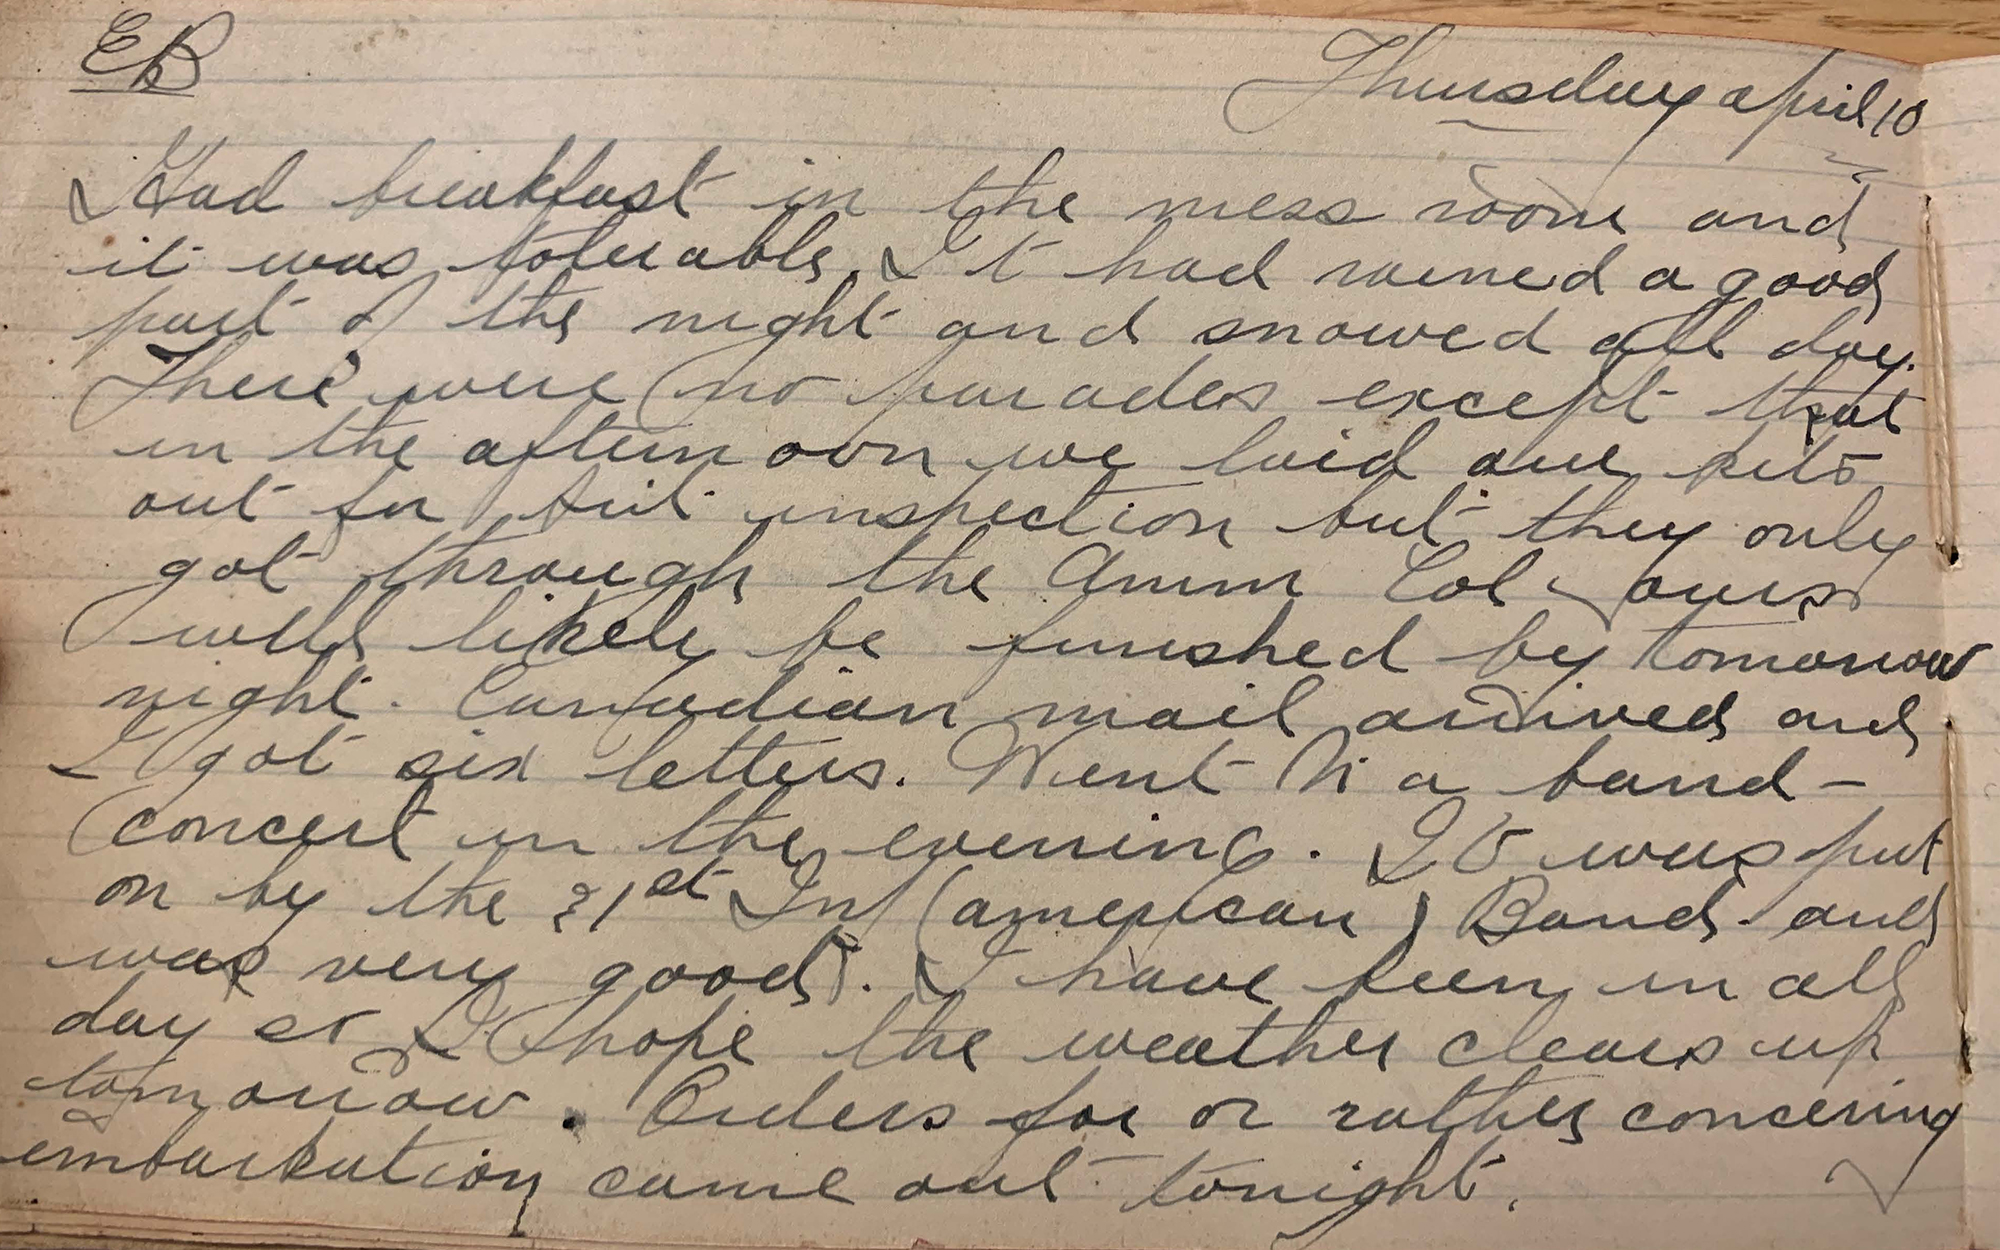 EB
Thursday april 10
Had breakfast in the mess room and
it was tolerable. It had rained a good
part of the night and snowed all day.
There were no parades except that
in the afternoon we laid our kits
out for kit inspection but they only
got through the Amm Col - ours
will likely be finished by tomorrow
night. Canadian mail arrived and
I got six letters. Went to a band-
concert in the evening. It was put
on by the 21st Inf (american) Band and
was very good. I have been in all
day so I hope the weather clears up
tomorrow. Orders for or rather concering
embarkation came out tonight.